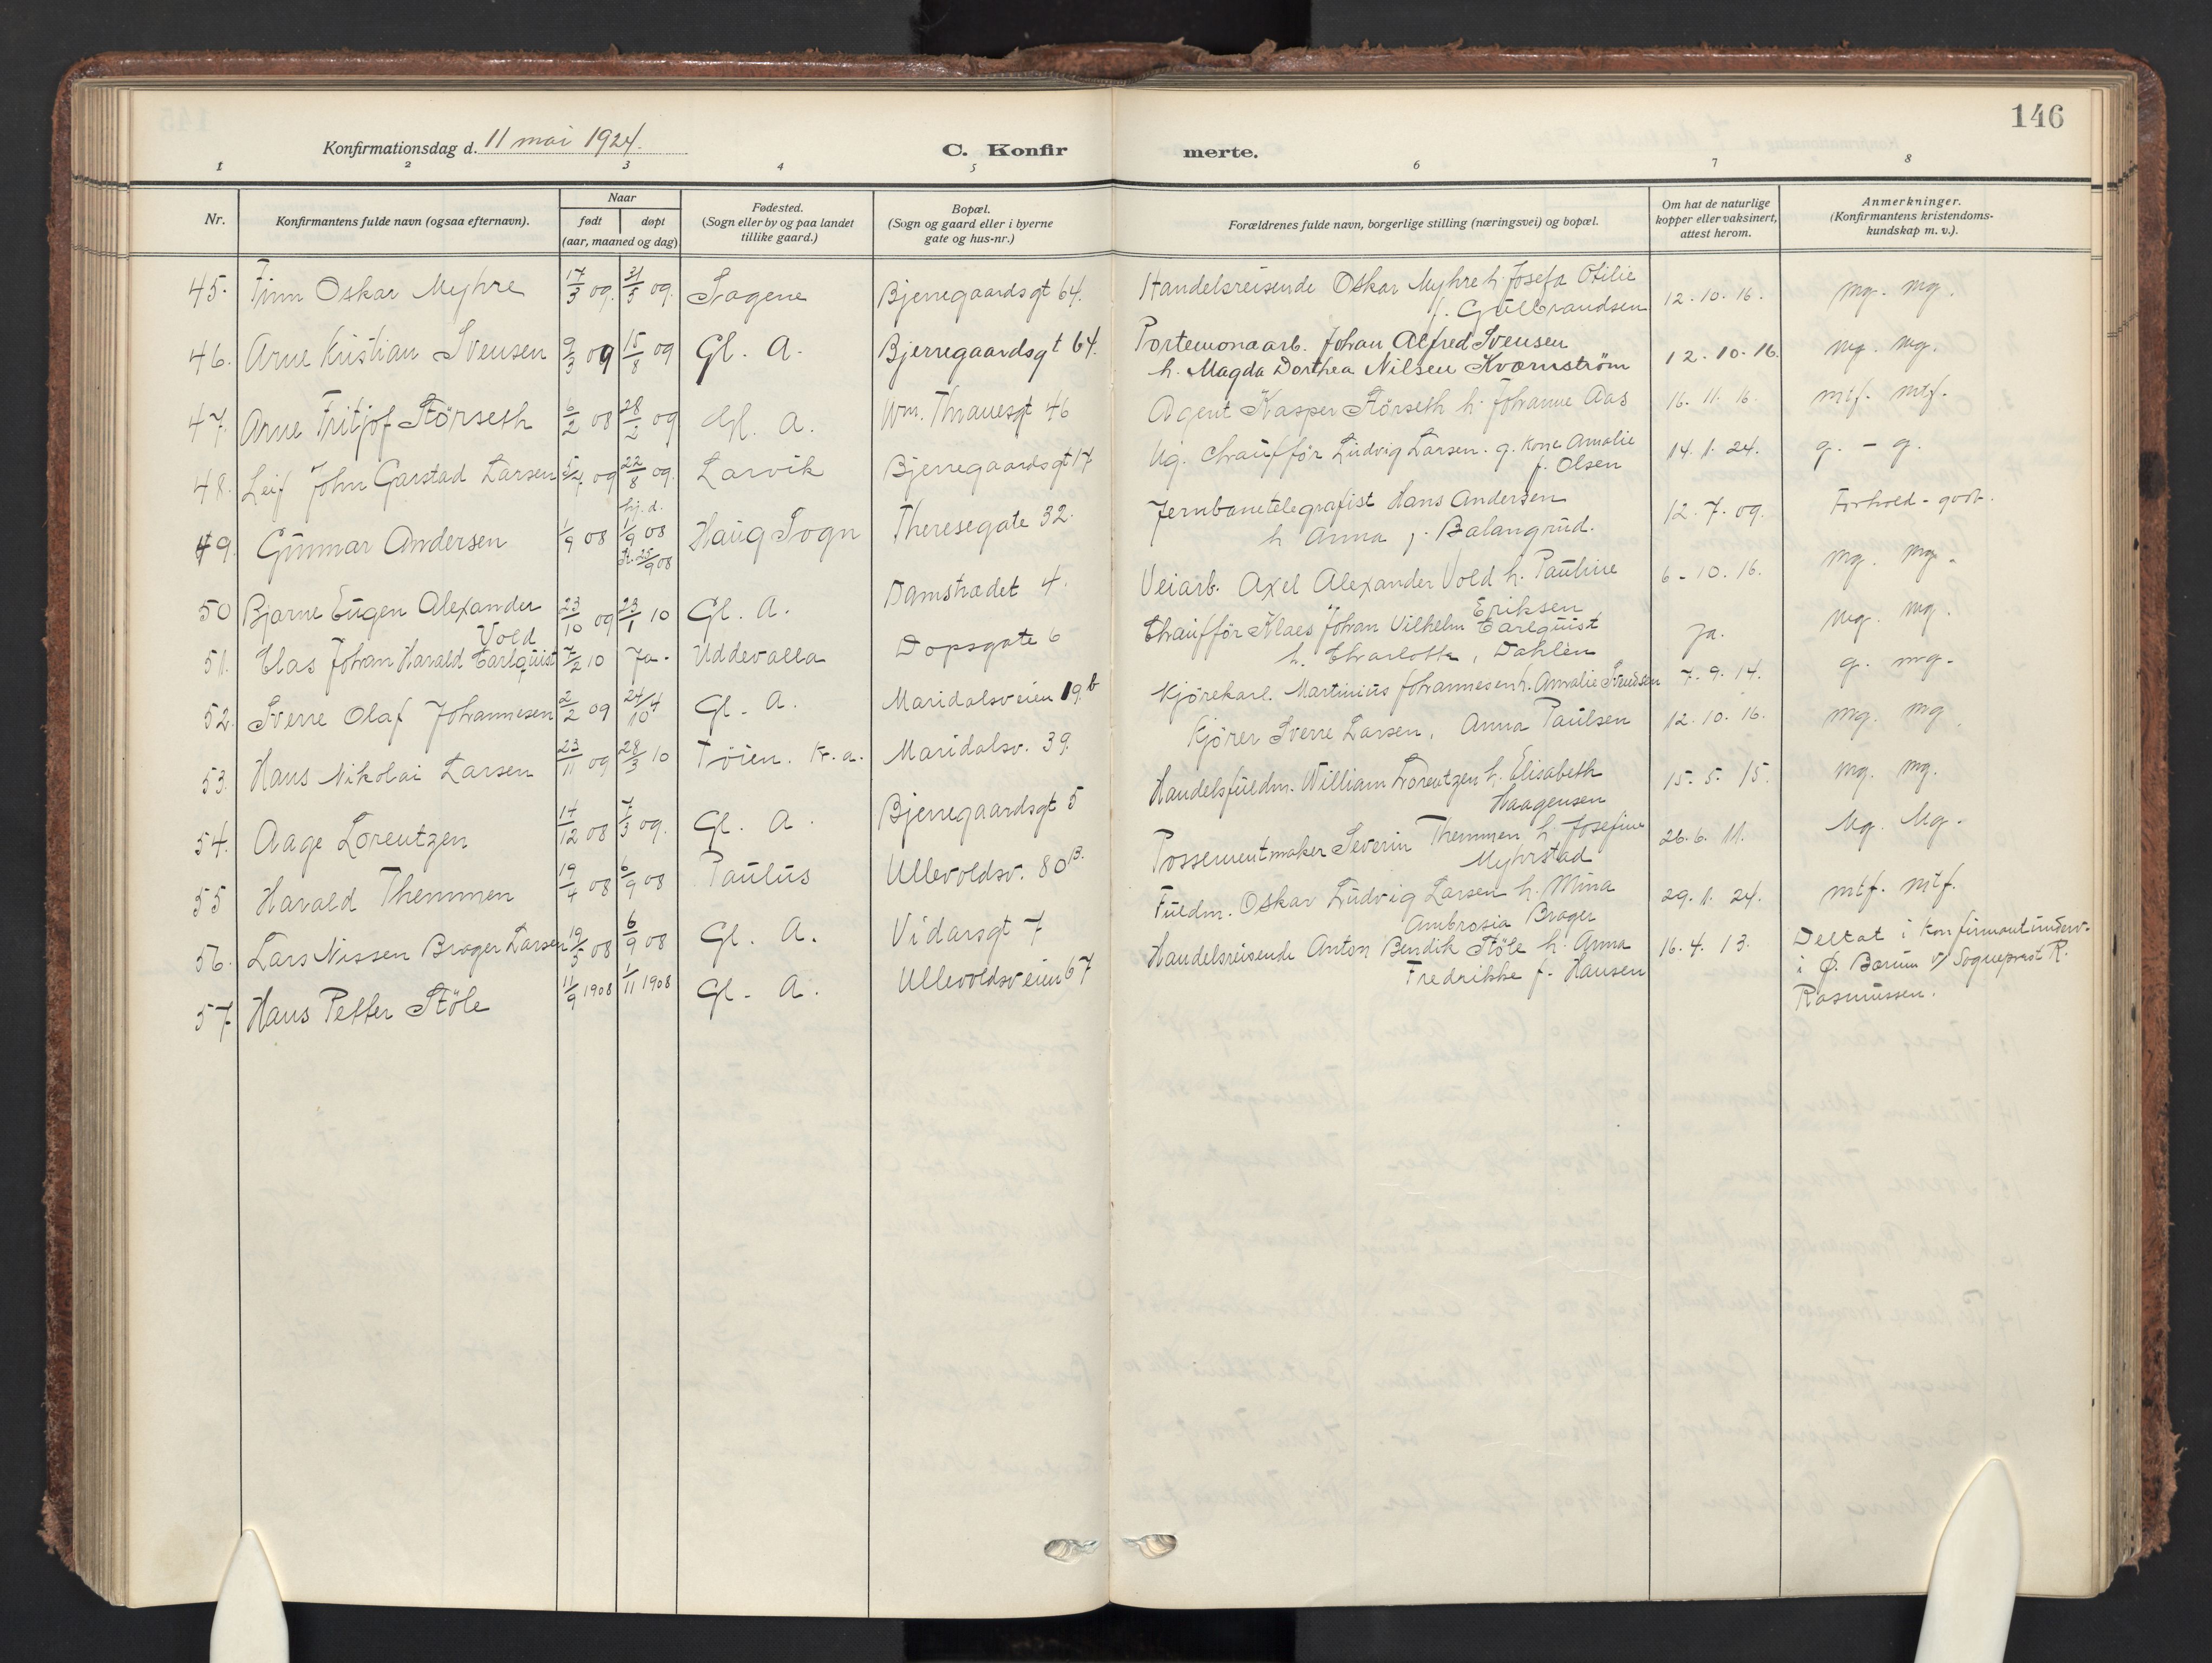 146
Konfirmationsdag d. 11 mai 1924.
C. Konfir merte.
1 2 3 4 5 6 7 8
Nr.
Konfirmantens fulde navn (ogsaa efternavn).
Naar
født døpt
(aar, maaned og dag)
Fødested.
(Sogn eller by og paa landet
tillike gaard.)
Bopæl.
(Sogn og gaard eller i byerne
gate og hus-nr.)
Forældrenes fulde navn, borgerlige stilling (næringsvei) og bopæl.
Om hat de naturlige
kopper eller vaksinert,
attest herom.
Anmerkninger.
(Konfirmantens kristendoms-
kundskap m. v.).
45. Finn Oskar Myhre 17/3 09. 31/5 09. Sagene Bjerregaardsgt 64. Handelsreisende Oskar Myhre h. Josefa Otilie 12.10.16. mg. mg.
f. Gulbrandsen
46. Arne Kristian Svensen 9/3 09 15/8 09 Gl. A. Bjerregaardsgt 64. Portemonaarb. Johan Alfred Svensen 12.10.16. mg. mg.
h. Magda Dorthea Nilsen Kvarnstrøm
47. Arne Fritjof Störseth 6/2 08 28/2 09 Gl. A. Wm. Thranesgt 46 Agent Kasper Störseth h. Johanne Aas 16.11.16. mtf. mtf.
48. Leif John Garstad Larsen 09 22/8 09. Larvik Bjerregaardsgt 17 Ug. chauffør Ludvig Larsen. g. kone Amalie 14.1.24. g. - g.
f. Olsen
hj. d.
49. Gunnar Andersen 1/9 08 1/9 08 Haug Sogn Theresegate 32. Jernbanetelegrafist Hans Andersen 12.7.09. Forhold - godt.
25/9 08 h Anna f. Balangrud.
50 Bjarne Eugen Alexander 23/10 09 23/1 10 Gl. A. Damstrædet 4. Veiarb. Axel Alexander Vold h. Pauline 6-10.16. mg. mg.
Vold Eriksen
51. Clas Johan Harald Carlquist 7/2 10 Ja. Uddevalla Dopsgate 6 Chauffør Klaes Johan Vilhelm Carlquist Ja. mg. mg.
h. Charlotte, Dahlèn
52. Sverre Olaf Johannesen 2/2 09 24/4 10 Gl. A. Maridalsveien 19.b Kjørekarl. Martinius Johannesen h. Amalie Svendsen 7.9.14. g. mg.
53. Hans Nikolai Larsen 23/11 09 28/3 10 Töien. Kr.a. Maridalsv. 39. Kjører Sverre Larsen, Anna Paulsen 12.10.16. mg. mg.
54. Aage Lorentzen 14/12 08 7/3 09. Gl. A. Bjerregaardsgt 5 Handelsfuldm. William Lorentzen h. Elisabeth 15.5.15. mg. mg.
Haagensen
55 Harald Themmen 19/4 08 6/9 08 Paulus Ullevoldsv. 80 B. Possementmaker Severin Themmen h. Josefine 26.6.11. Mg. Mg.
Myhrstad
56. Lars Nissen Brager Larsen 19/5 08 6/9 08 Gl. A. Vidarsgt 7 Fuldm. Oskar Ludvig Larsen h. Mina 29.1.24. mtf. mtf.
Ambrosia Brager
57. Hans Petter Støle 11/9 1908 1/11 1908 Gl. A. Ullevoldsveien 67 Handelsreisende Anton Bendik Støle h. Anna 16.4.13. Deltat i konfirmantunderv.
Fredrikke f. Hansen i Ø. Bærum v/ Sogneprest R.
Rasmussen.